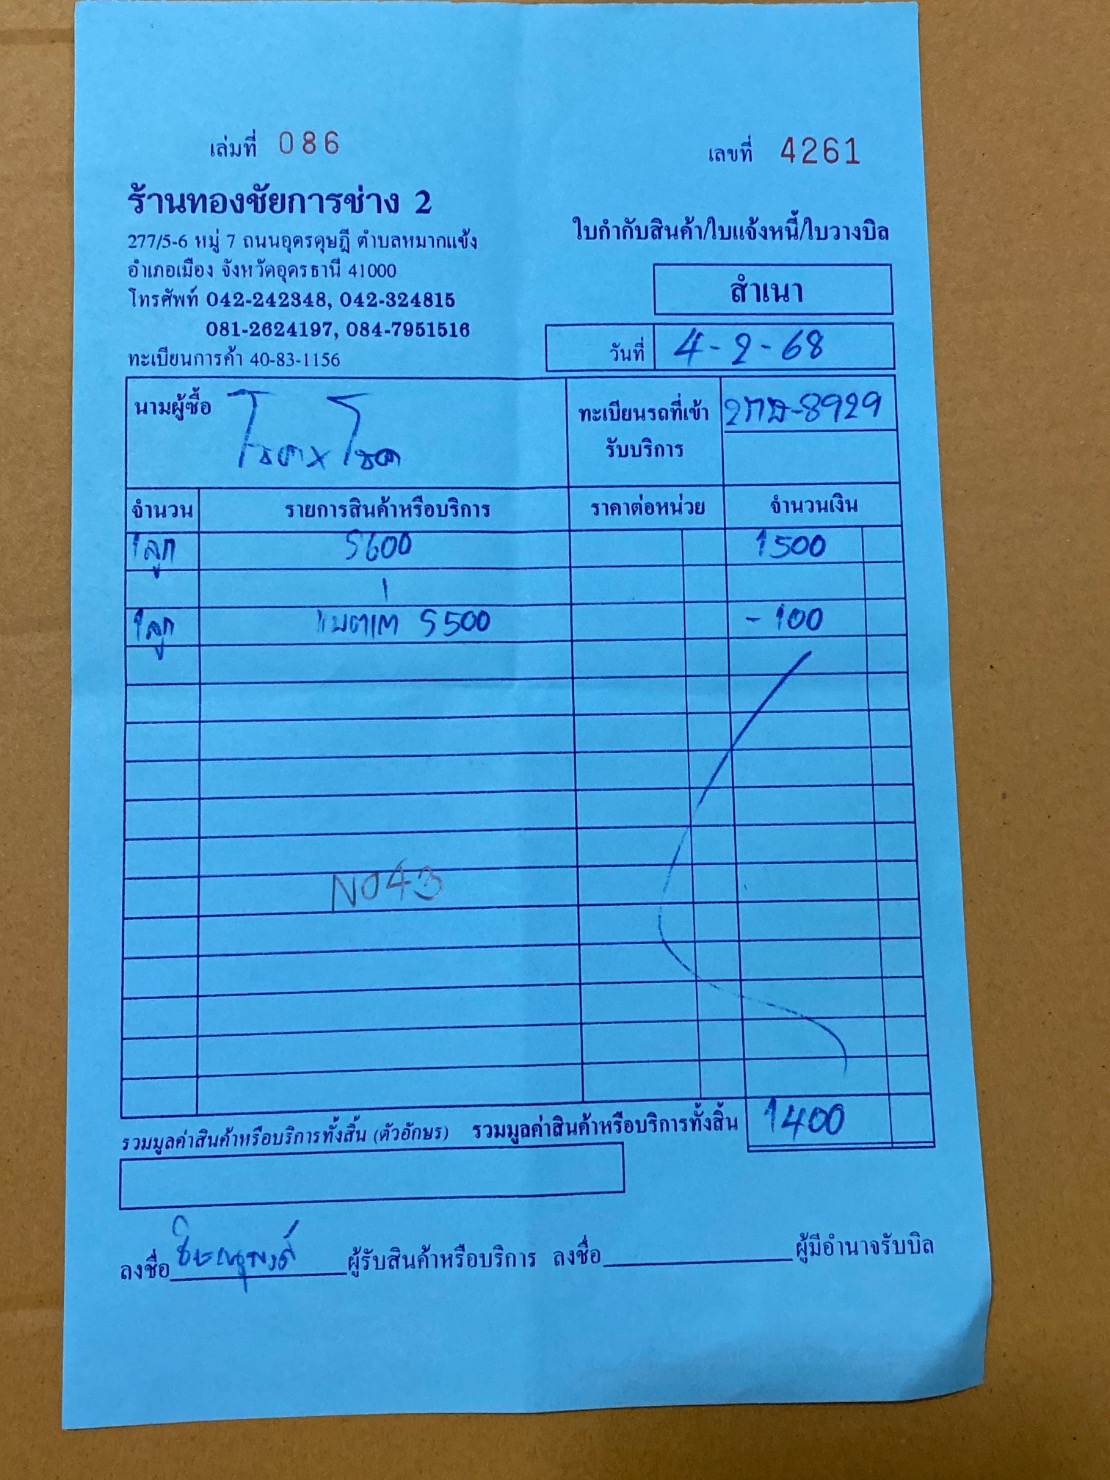 เล่มที่ 086
เลขที่ 4261
ร้านทองชัยการช่าง 2
277/5-6 หมู่ 7 ถนนอุดรดุษฎี ตำบลหมากแข้ง
อำเภอเมือง จังหวัดอุดรธานี 41000
โทรศัพท์ 042-242348, 042-324815
081-2624197, 084-7951516
ทะเบียนการค้า 40-83-1156
ใบกำกับสินค้า/ใบแจ้งหนี้/ใบวางบิล
สำเนา
วันที่ 4-2-68
นามผู้ซื้อ โชค x โชค
ทะเบียนรถที่เข้า
รับบริการ
8929
จำนวน รายการสินค้าหรือบริการ ราคาต่อหน่วย จำนวนเงิน
1 ลูก S600 1500
1 ลูก แบตเก่า S500 -100
NO43
รวมมูลค่าสินค้าหรือบริการทั้งสิ้น (ตัวอักษร) รวมมูลค่าสินค้าหรือบริการทั้งสิ้น 1400
ลงชื่อ ผู้รับสินค้าหรือบริการ ลงชื่อ ผู้มีอำนาจรับบิล